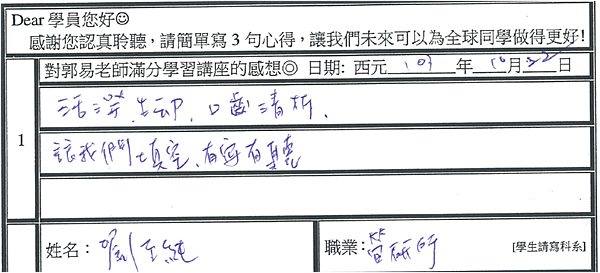 Dear 學員您好☺
感謝您認真聆聽，請簡單寫 3 句心得，讓我們未來可以為全球同學做得更好!
對郭易老師滿分學習講座的感想◎ 日期: 西元 107 年 10 月 22 日
1
活潑、生動、口齒清晰、
讓我們填空、有寫有
姓名： 劉至純
職業： 管研所 [學生請寫科系]